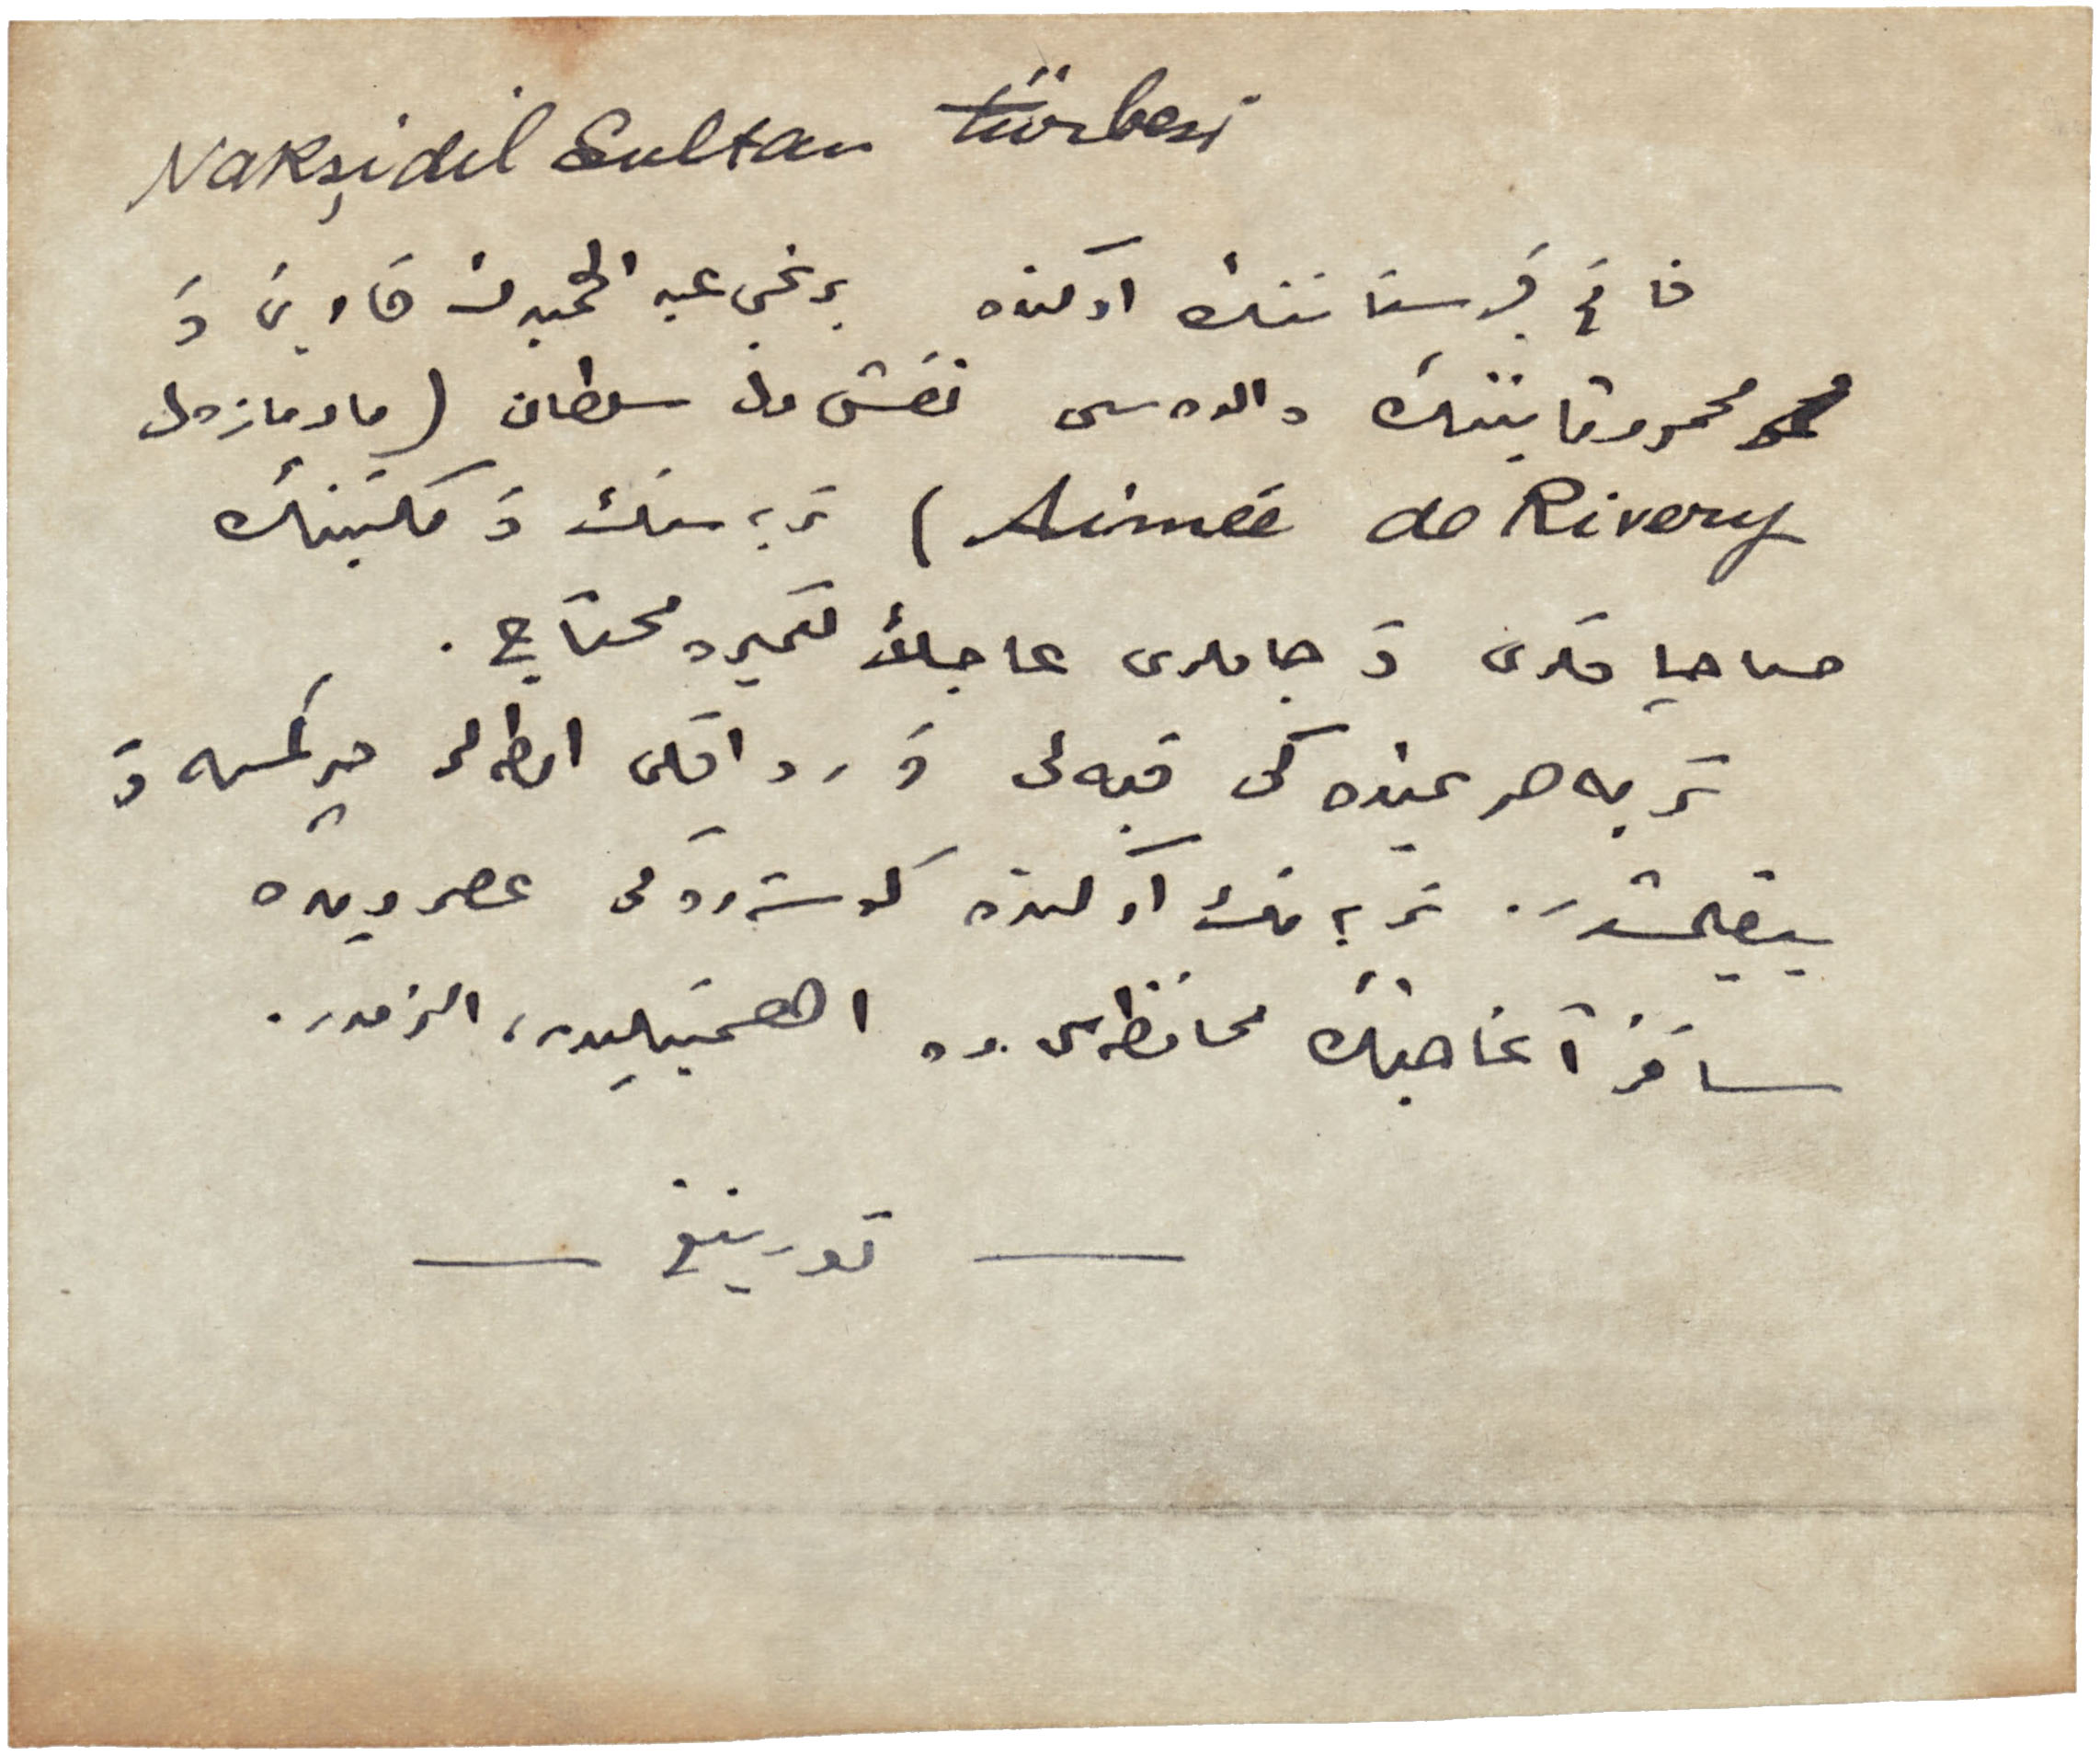 Nakşidil Sultan türbesi
فاتح قبرستاننك اوكنده برنجی عبد الحمیدك قادینی و
محمود ثانیننك والده سی نقش دل سلطان (مادمازه ل
Aimée de Rivery) تربه سنك و مكتبنك
صاچاقلری و جاملری عاجلاً تعمیره محتاج.
تربه حریمنده كی قبه لی و رواقلی اوطه لر چركسه و
ییقیلمشدر. تربه نك اوكنده كوستردیكی عصر دیده
ساقز آغاجنك محافظه سی ده اهمیتلیدر، الزمدر.